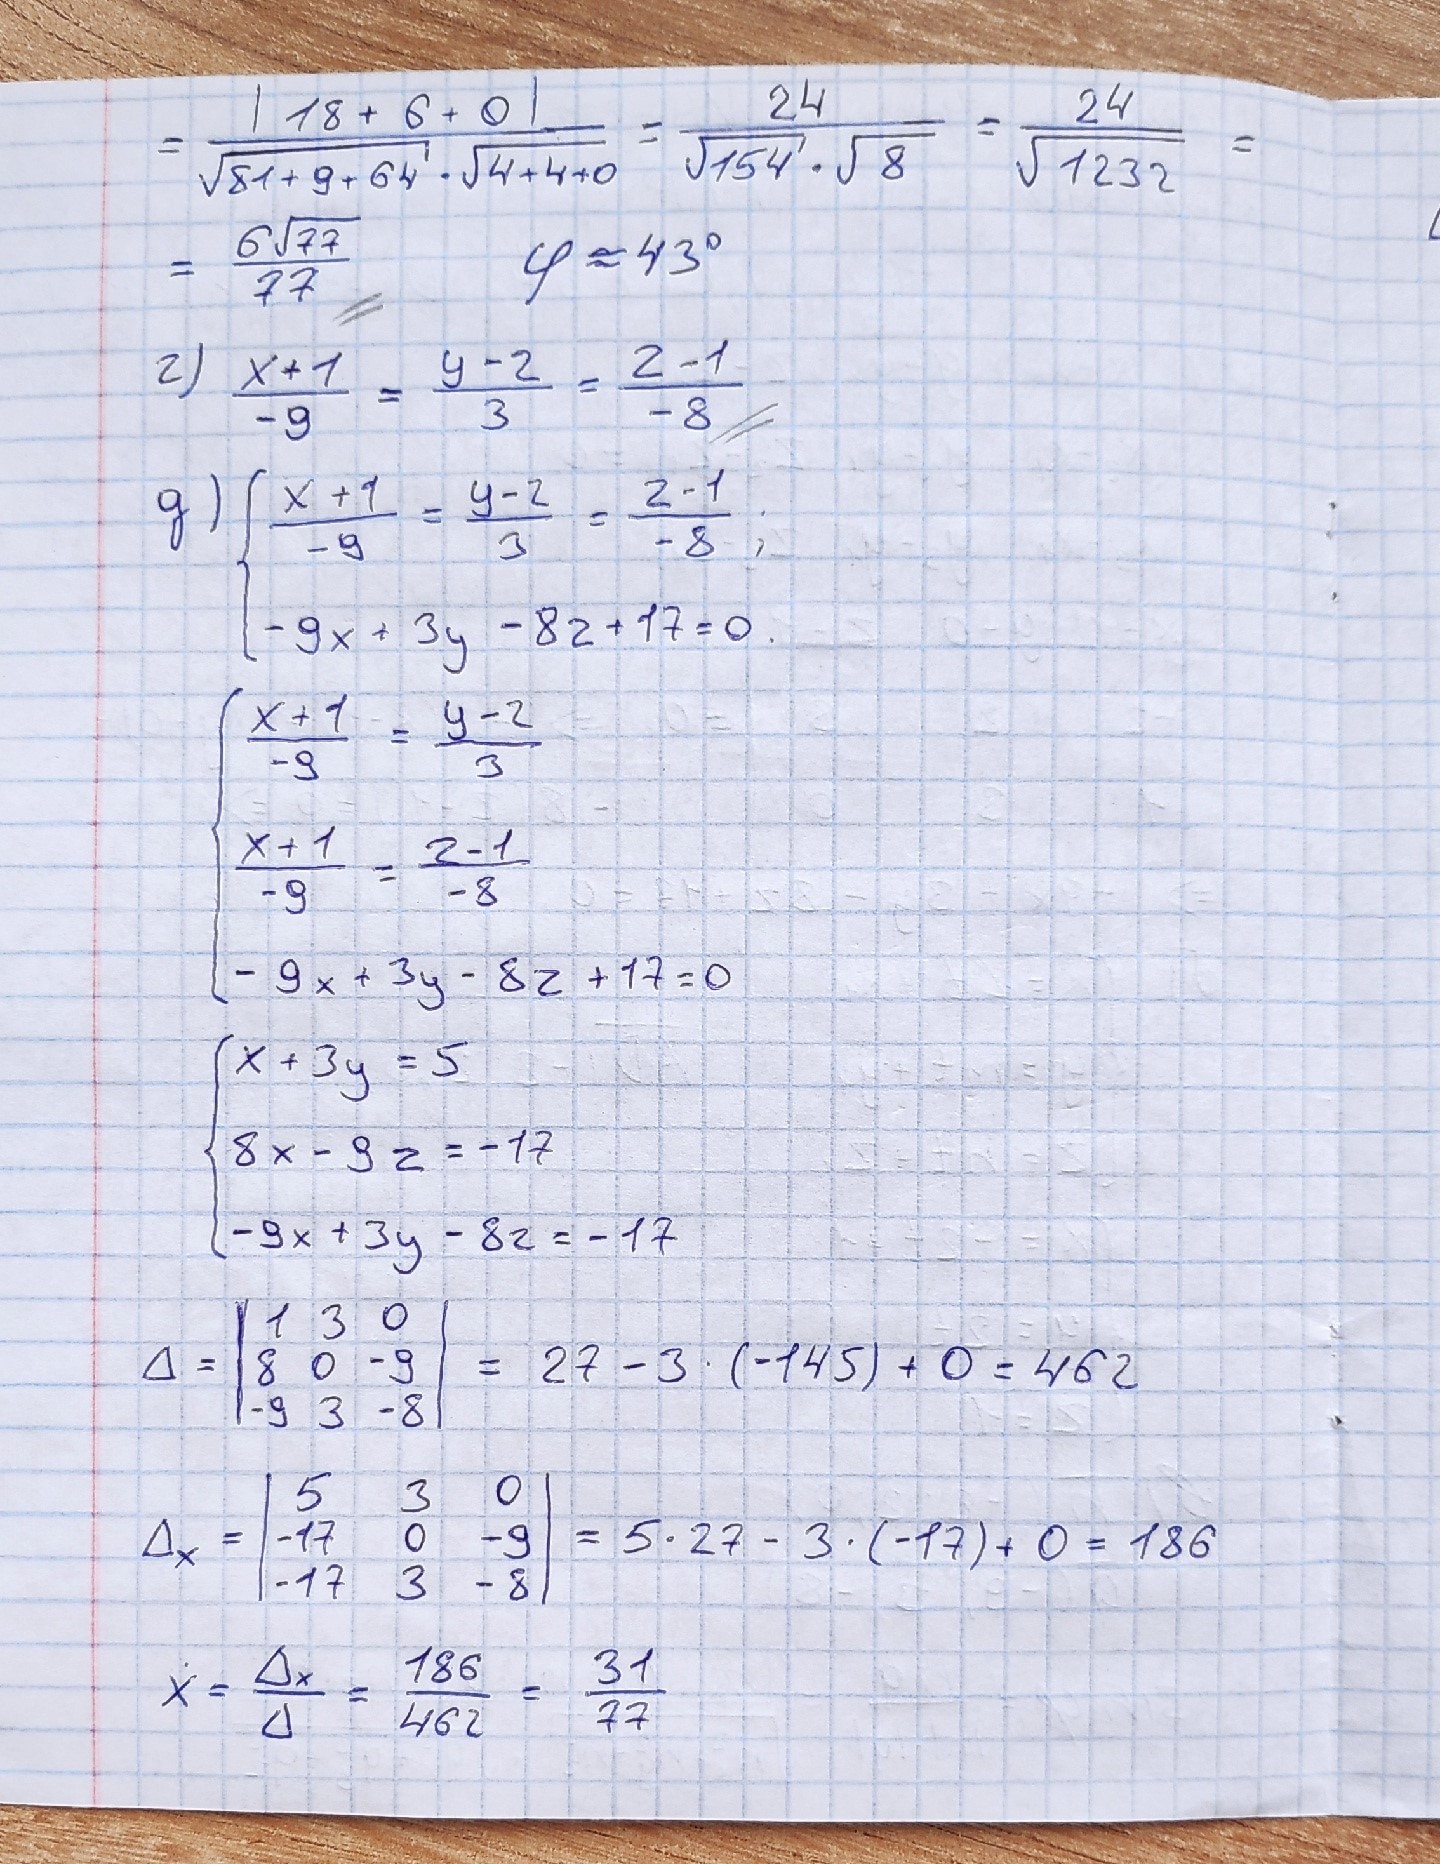 = |18 + 6 + 0| / (√81+9+64 · √4+4+0) = 24 / (√154 · √8) = 24 / √1232 =
= 6√77 / 77   φ ≈ 43°
г) (x+1)/-9 = (y-2)/3 = (z-1)/-8
д) { (x+1)/-9 = (y-2)/3 = (z-1)/-8 ;
-9x + 3y - 8z + 17 = 0.
{ (x+1)/-9 = (y-2)/3
(x+1)/-9 = (z-1)/-8
-9x + 3y - 8z + 17 = 0
{ x + 3y = 5
8x - 9z = -17
-9x + 3y - 8z = -17
Δ = | 1 3 0 |
| 8 0 -9 | = 27 - 3 · (-145) + 0 = 462
| -9 3 -8 |
Δx = | 5 3 0 |
| -17 0 -9 | = 5·27 - 3·(-17) + 0 = 186
| -17 3 -8 |
x = Δx/Δ = 186/462 = 31/77